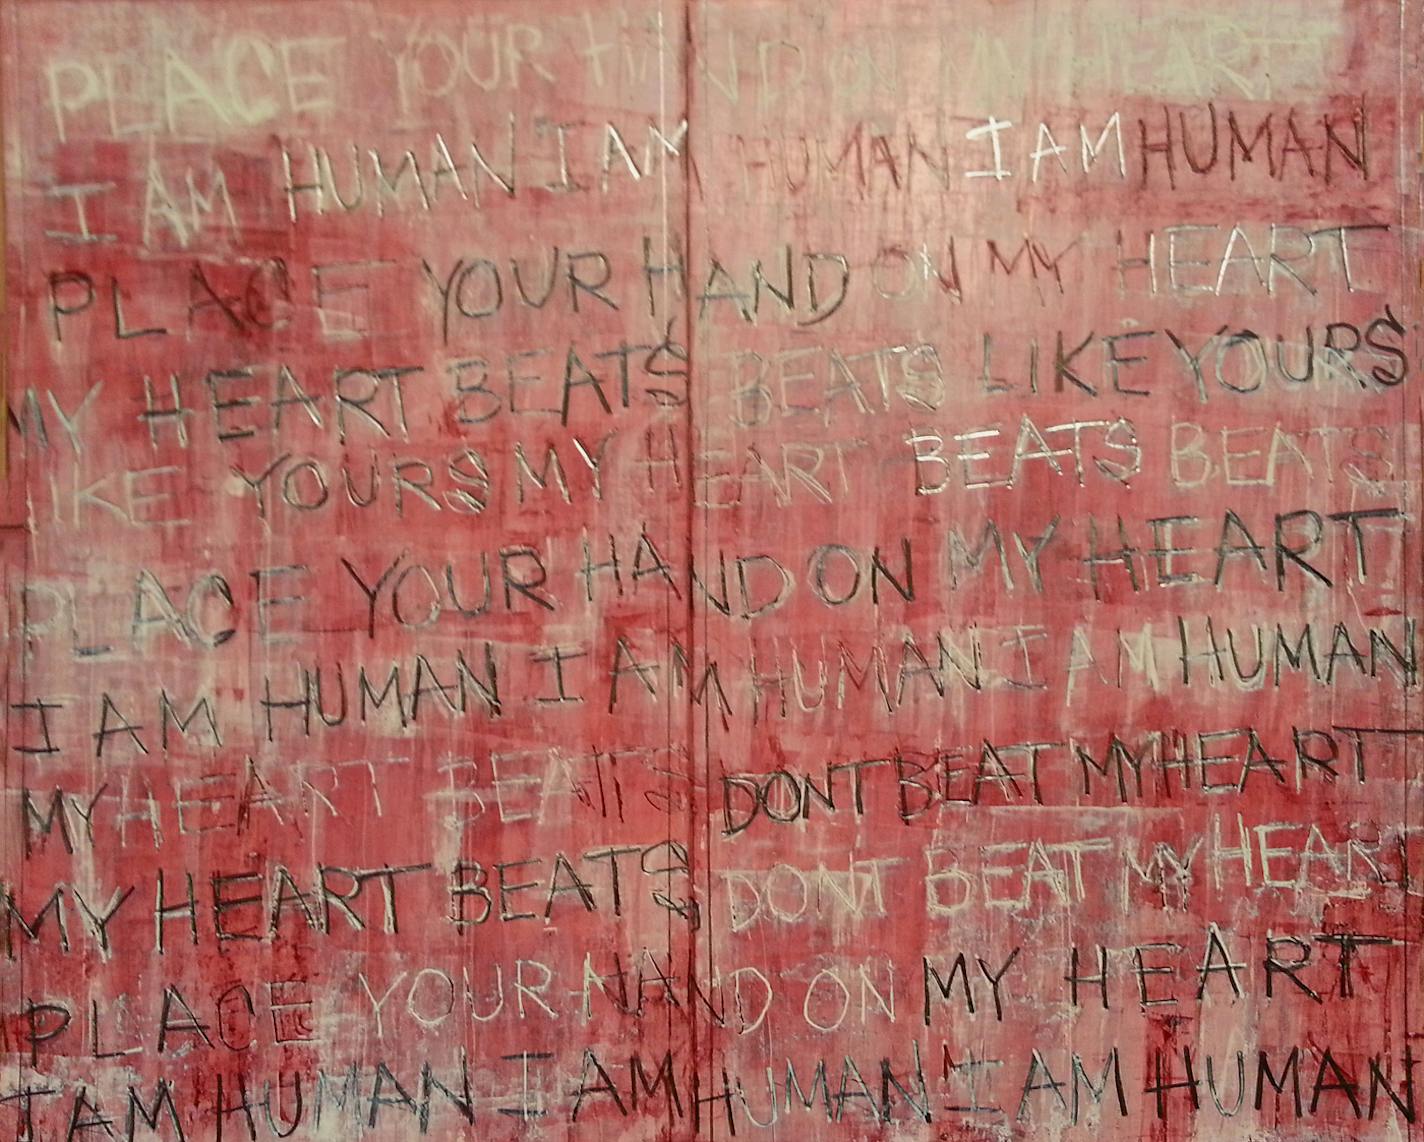 PLACE YOUR HAND ON MY HEART
I AM HUMAN I AM HUMAN I AM HUMAN
PLACE YOUR HAND ON MY HEART
MY HEART BEATS BEATS LIKE YOURS
LIKE YOURS MY HEART BEATS BEATS
PLACE YOUR HAND ON MY HEART
I AM HUMAN I AM HUMAN I AM HUMAN
MY HEART BEATS DONT BEAT MY HEART
MY HEART BEATS DONT BEAT MY HEART
PLACE YOUR HAND ON MY HEART
I AM HUMAN I AM HUMAN I AM HUMAN